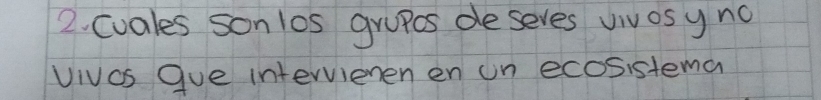 2. Cuales son los grupos de seres vivos y no
vivos que intervienen en un ecosistema